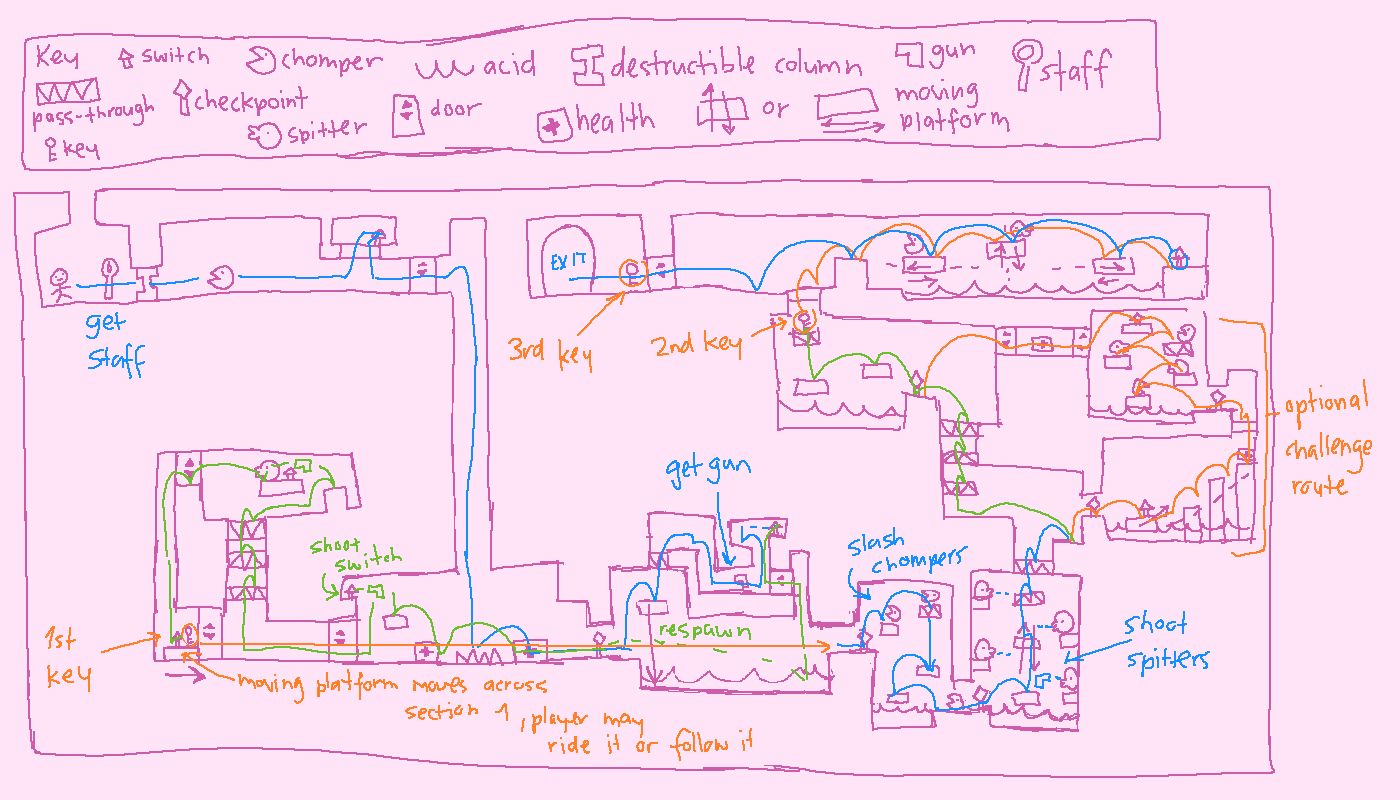 Key
switch
chomper
acid
destructible column
gun
staff
pass-through
checkpoint
spitter
door
health
or
moving
platform
key
EXIT
get
staff
3rd key
2nd key
optional
challenge
route
get gun
slash
chompers
shoot
switch
respawn
shoot
spitters
1st
key
moving platform moves across
section 1, player may
ride it or follow it